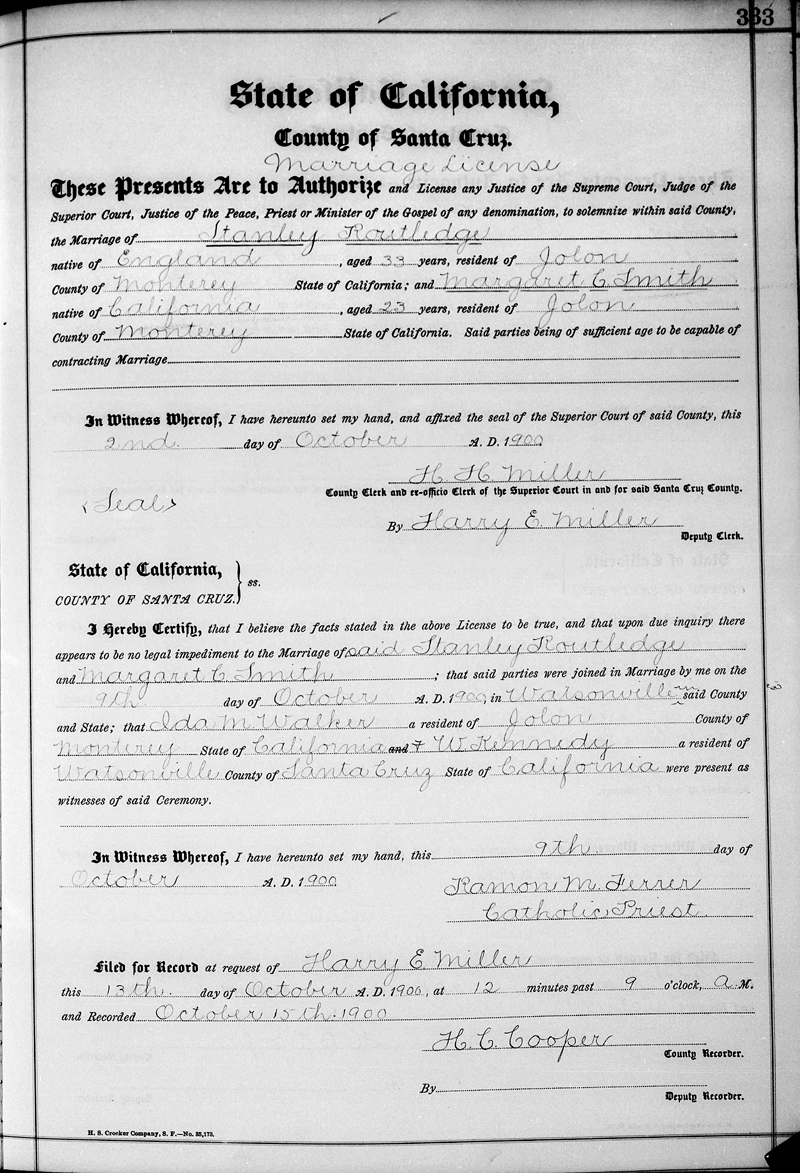 333
State of California,
County of Santa Cruz.
Marriage License
These Presents Are to Authorize and License any Justice of the Supreme Court, Judge of the
Superior Court, Justice of the Peace, Priest or Minister of the Gospel of any denomination, to solemnize within said County,
the Marriage of Stanley Routledge
native of England, aged 33 years, resident of Jolon
County of Monterey State of California; and Margaret C. Smith
native of California, aged 23 years, resident of Jolon
County of Monterey State of California. Said parties being of sufficient age to be capable of
contracting Marriage
In Witness Whereof, I have hereunto set my hand, and affixed the seal of the Superior Court of said County, this
2nd. day of October A. D. 1900
H. H. Miller
County Clerk and ex-officio Clerk of the Superior Court in and for said Santa Cruz County.
(Seal)
By Harry E. Miller
Deputy Clerk.
State of California,
COUNTY OF SANTA CRUZ. } ss.
I Hereby Certify, that I believe the facts stated in the above License to be true, and that upon due inquiry there
appears to be no legal impediment to the Marriage of said Stanley Routledge
and Margaret C. Smith; that said parties were joined in Marriage by me on the
9th day of October A. D. 1900, in Watsonville said County
and State; that Ida M. Walker a resident of Jolon County of
Monterey State of California and W. Kennedy a resident of
Watsonville County of Santa Cruz State of California were present as
witnesses of said Ceremony.
In Witness Whereof, I have hereunto set my hand, this 9th. day of
October A. D. 1900
Ramon M. Ferrer
Catholic Priest
Filed for Record at request of Harry E Miller
this 13th. day of October A. D. 1900, at 12 minutes past 9 o'clock, A. M.
and Recorded October 15th. 1900
H. C. Cooper
County Recorder.
By
Deputy Recorder.
H. S. Crocker Company, S. F.—No. 35,173.